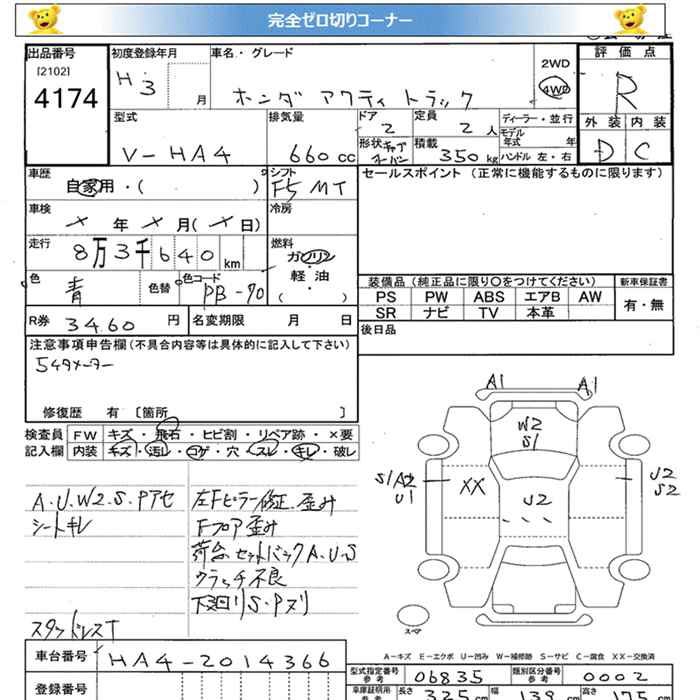 完全ゼロ切りコーナー
出品番号 初度登録年月 車名・グレード 評価点
[2102]
4174
H.3 月 ホンダ アクティ トラック 2WD 4WD R
型式 排気量 ドア 2 定員 2 人 ディーラー・並行 外装 内装
V-HA4 660 cc 形状 積載 350 kg モデル年式 年 ハンドル 左・右 D C
車歴 シフト セールスポイント (正常に機能するものに限ります)
自家用・( ) F5 MT
車検 冷房
年 月( 日)
走行 8万3千640 km 燃料 ガソリン・軽油 ( )
色 青 色替 色コード PB-70
装備品(純正品に限り○をつけてください) 新車保証書
PS PW ABS エアB AW 有・無
SR ナビ TV 本革
R券 3460 円 名変期限 月 日 後日品
注意事項申告欄(不具合内容等は具体的に記入して下さい)
5ケタメーター
修復歴 有 〔箇所 〕
検査員 FW キズ・飛石・ヒビ割・リペア跡・×要
記入欄 内装 キズ・汚レ・コゲ・穴・スレ・キレ・破レ
A1 A1
W2
S1
S1A2
U1
XX
U2
U2
S2
A.U.W2.S.Pアセ
シートキレ
左Fピラー修正.歪み
Fフロア歪み
荷台セットバックA.U.S
クラッチ不良
下廻りS.Pヌリ
スタッドレスT
スペア
A-キズ E-エクボ U-凹み W-補修跡 S-サビ C-腐食 XX-交換済
車台番号 HA4-2014366
型式指定番号 参考 06835 類別区分番号 参考 0002
登録番号
車庫証明用 参考 長さ 325 cm 幅 139 cm 高さ 175 cm